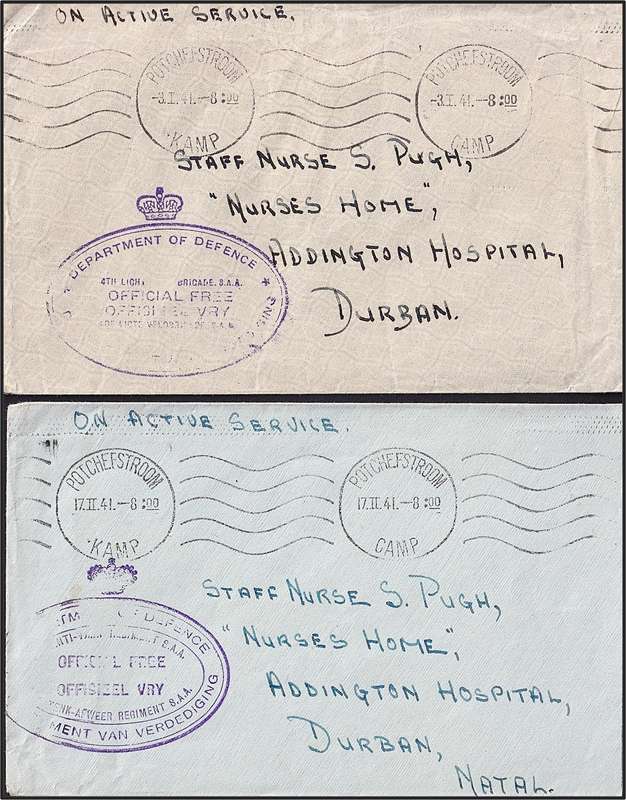 ON ACTIVE SERVICE.
POTCHEFSTROOM
-3.I.41.-8:00
KAMP
POTCHEFSTROOM
-3.I.41.-8:00
CAMP
STAFF NURSE S. PUGH,
"NURSES HOME",
ADDINGTON HOSPITAL,
DURBAN.
DEPARTMENT OF DEFENCE
4TH BRIGADE. S.A.A.
OFFICIAL FREE
OFFISIEEL VRY
ON ACTIVE SERVICE.
POTCHEFSTROOM
17.II.41.-8:00
KAMP
POTCHEFSTROOM
17.II.41.-8:00
CAMP
OF DEFENCE
REGIMENT S.A.A.
OFFICIAL FREE
OFFISIEEL VRY
TENK-AFWEER REGIMENT S.A.A.
MENT VAN VERDEDIGING
STAFF NURSE S. PUGH,
"NURSES HOME",
ADDINGTON HOSPITAL,
DURBAN,
NATAL.